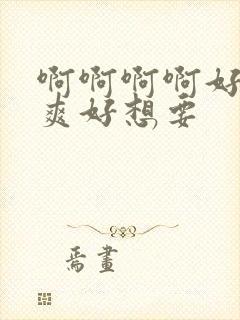 啊啊啊啊好
爽好想要
焉畫